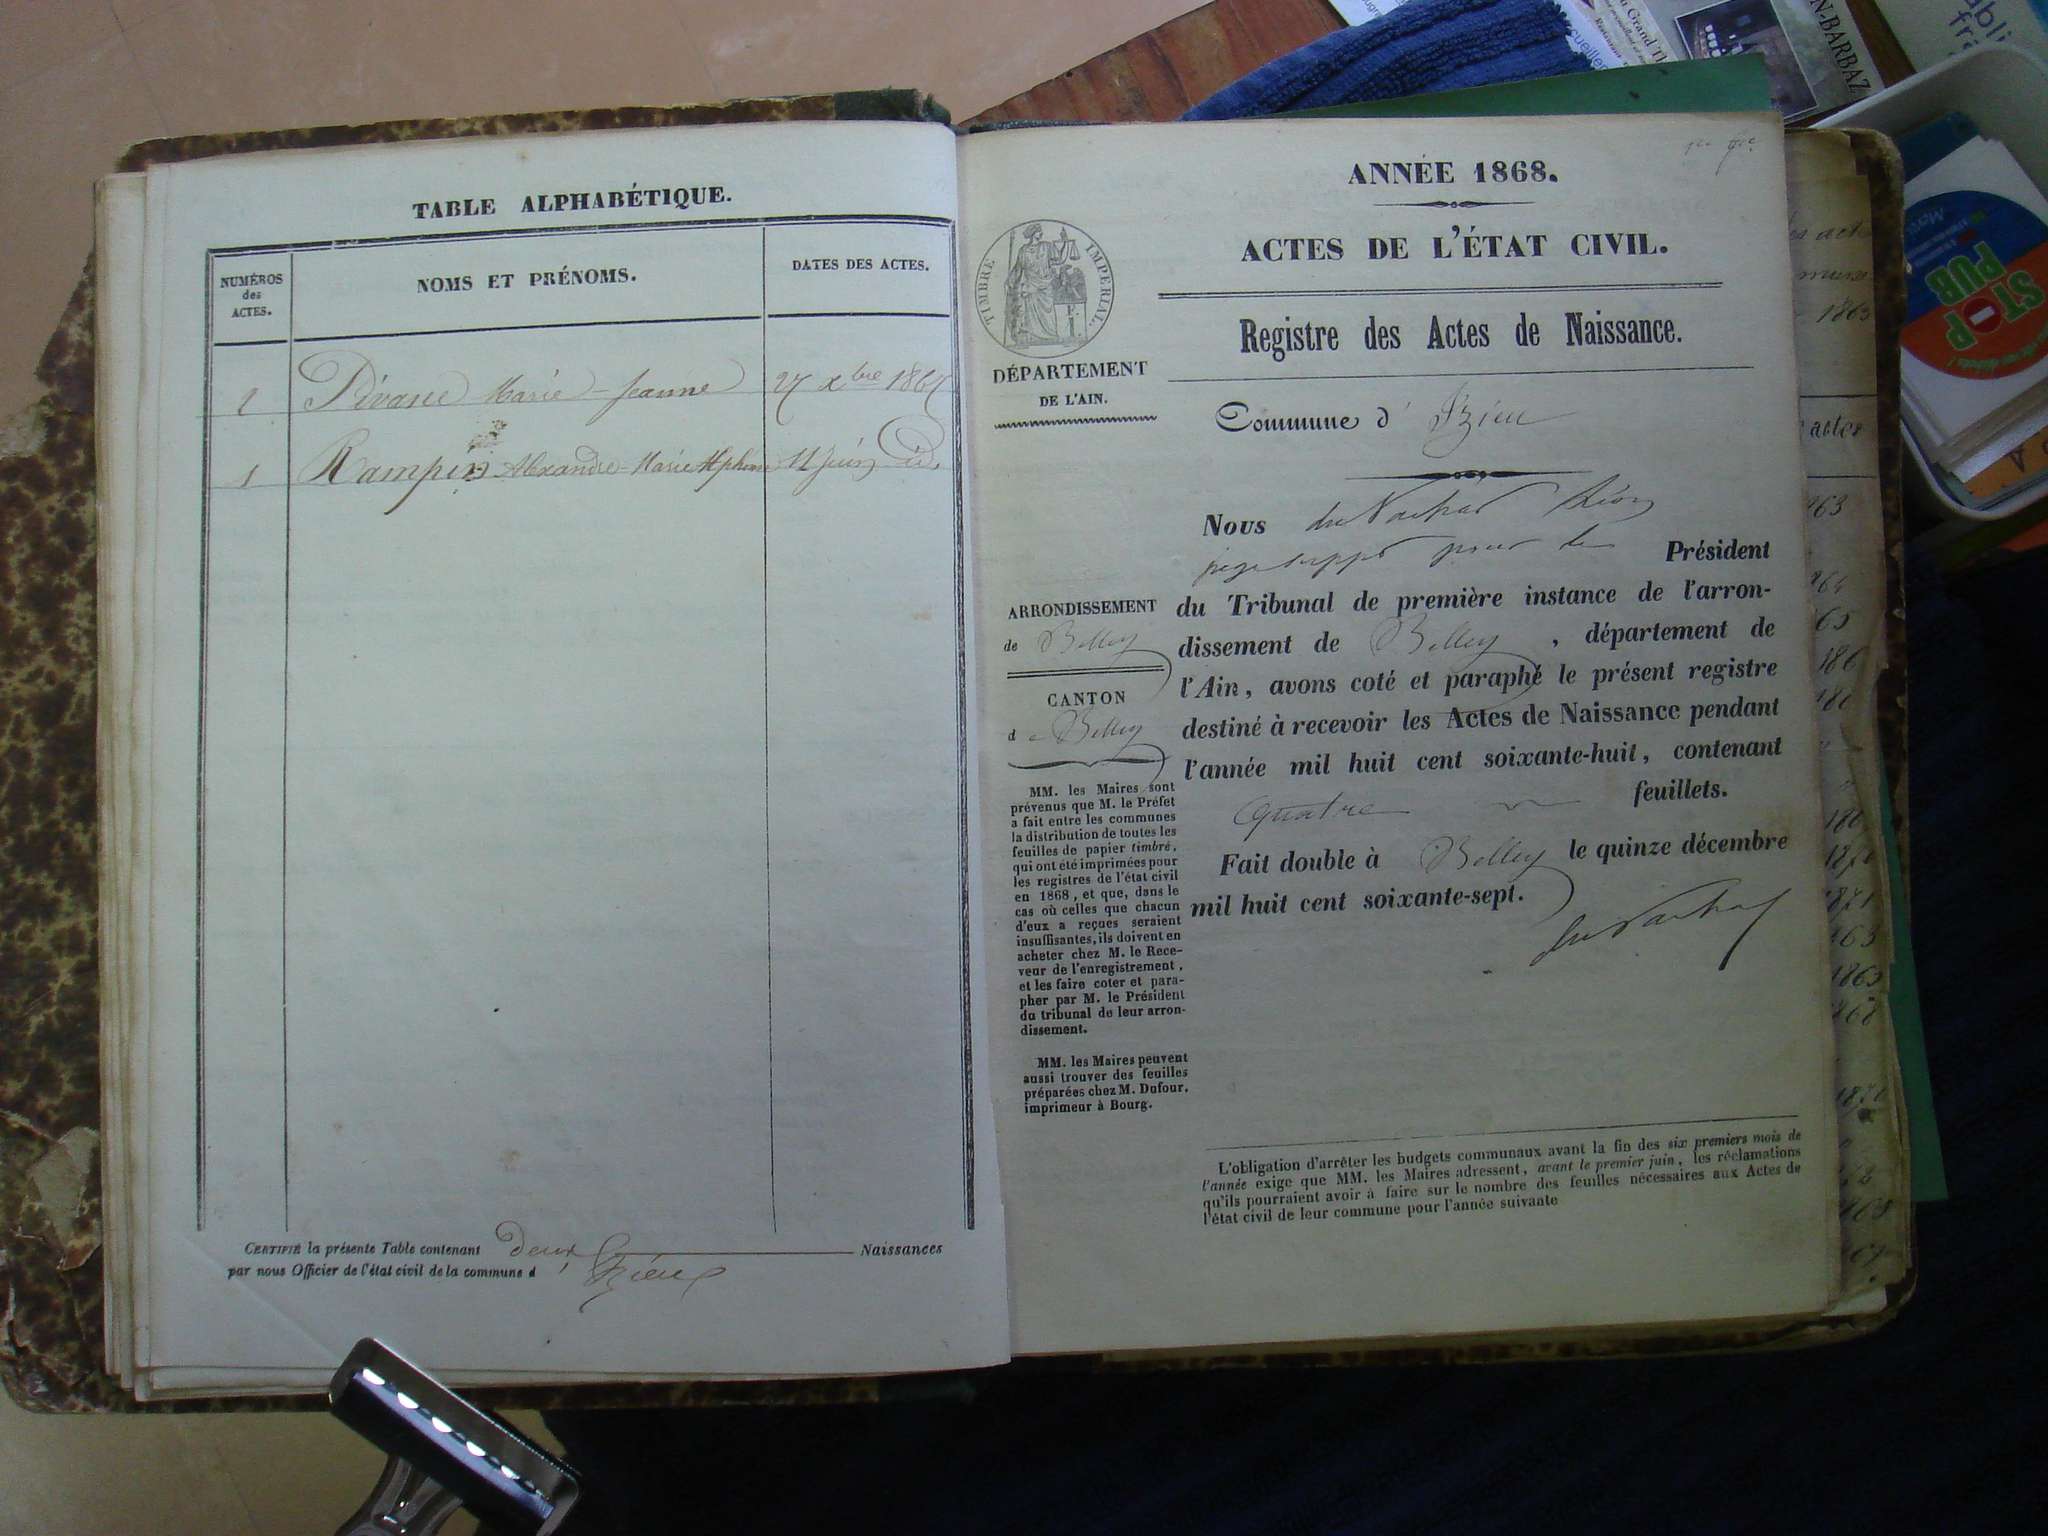 TABLE ALPHABÉTIQUE.
NUMÉROS
des
ACTES.
NOMS ET PRÉNOMS.
DATES DES ACTES.
2 Pivarie Marie-Jeanne 27 xbre 1867
1 Rampin Alexandre-Marie Alphonse 11 juin id.
CERTIFIÉ la présente Table contenant deux Naissances
par nous Officier de l'état civil de la commune d'Izieu
ANNÉE 1868.
ACTES DE L'ÉTAT CIVIL.
TIMBRE IMPERIAL.
Registre des Actes de Naissance.
DÉPARTEMENT
DE L'AIN.
Commune d' Izieu
Nous
juge supp pour le Président
du Tribunal de première instance de l'arron-
dissement de Belley, département de
l'Ain, avons coté et paraphé le présent registre
destiné à recevoir les Actes de Naissance pendant
l'année mil huit cent soixante-huit, contenant
quatre feuillets.
Fait double à Belley le quinze décembre
mil huit cent soixante-sept.
ARRONDISSEMENT
de Belley
CANTON
de Belley
MM. les Maires sont
prévenus que M. le Préfet
a fait entre les communes
la distribution de toutes les
feuilles de papier timbré,
qui ont été imprimées pour
les registres de l'état civil
en 1868, et que, dans le
cas où celles que chacun
d'eux a reçues seraient
insuffisantes, ils doivent en
acheter chez M. le Rece-
veur de l'enregistrement,
et les faire coter et para-
pher par M. le Président
du tribunal de leur arron-
dissement.
MM. les Maires peuvent
aussi trouver des feuilles
préparées chez M. Dufour,
imprimeur à Bourg.
L'obligation d'arrêter les budgets communaux avant la fin des six premiers mois de
l'année exige que MM. les Maires adressent, avant le premier juin, les réclamations
qu'ils pourraient avoir à faire sur le nombre des feuilles nécessaires aux Actes de
l'état civil de leur commune pour l'année suivante
actes
1863
1871
1863
STOP
PUB
N-BARBAZ